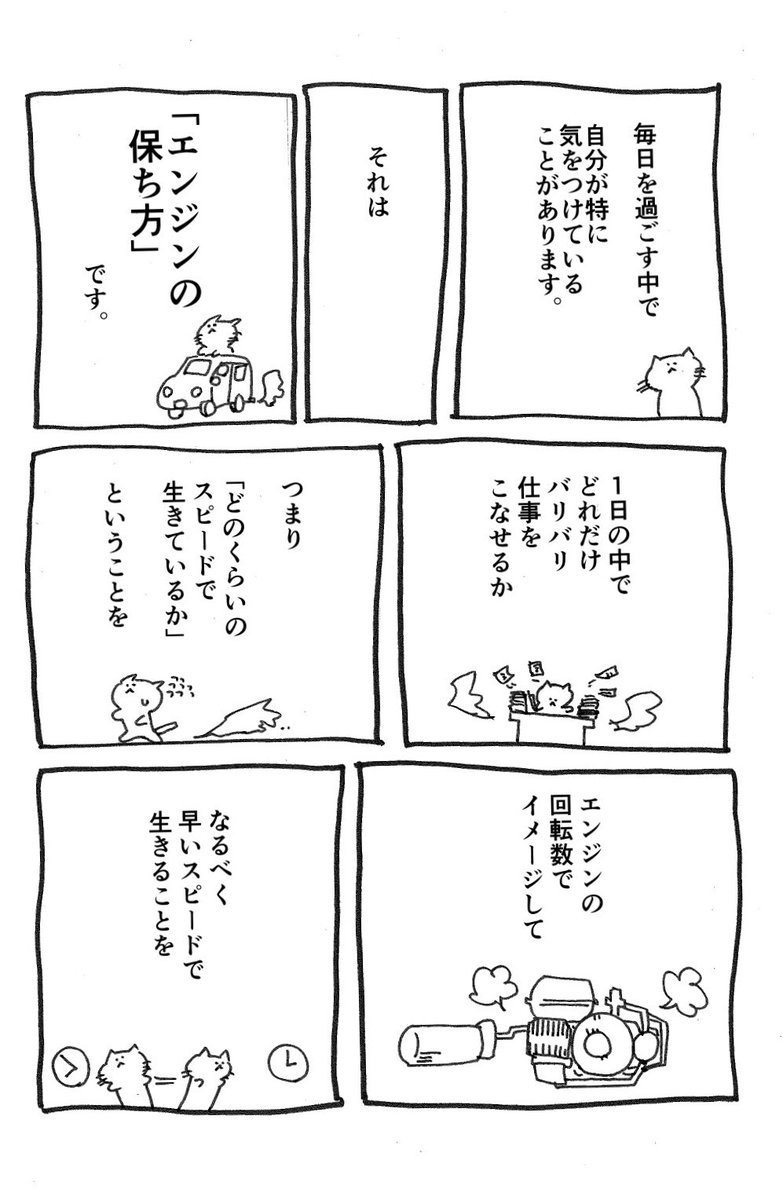 毎日を過ごす中で
自分が特に
気をつけている
ことがあります。
それは
「エンジンの
保ち方」
です。
1日の中で
どれだけ
バリバリ
仕事を
こなせるか
つまり
「どのくらいの
スピードで
生きているか」
ということを
エンジンの
回転数で
イメージして
なるべく
早いスピードで
生きることを